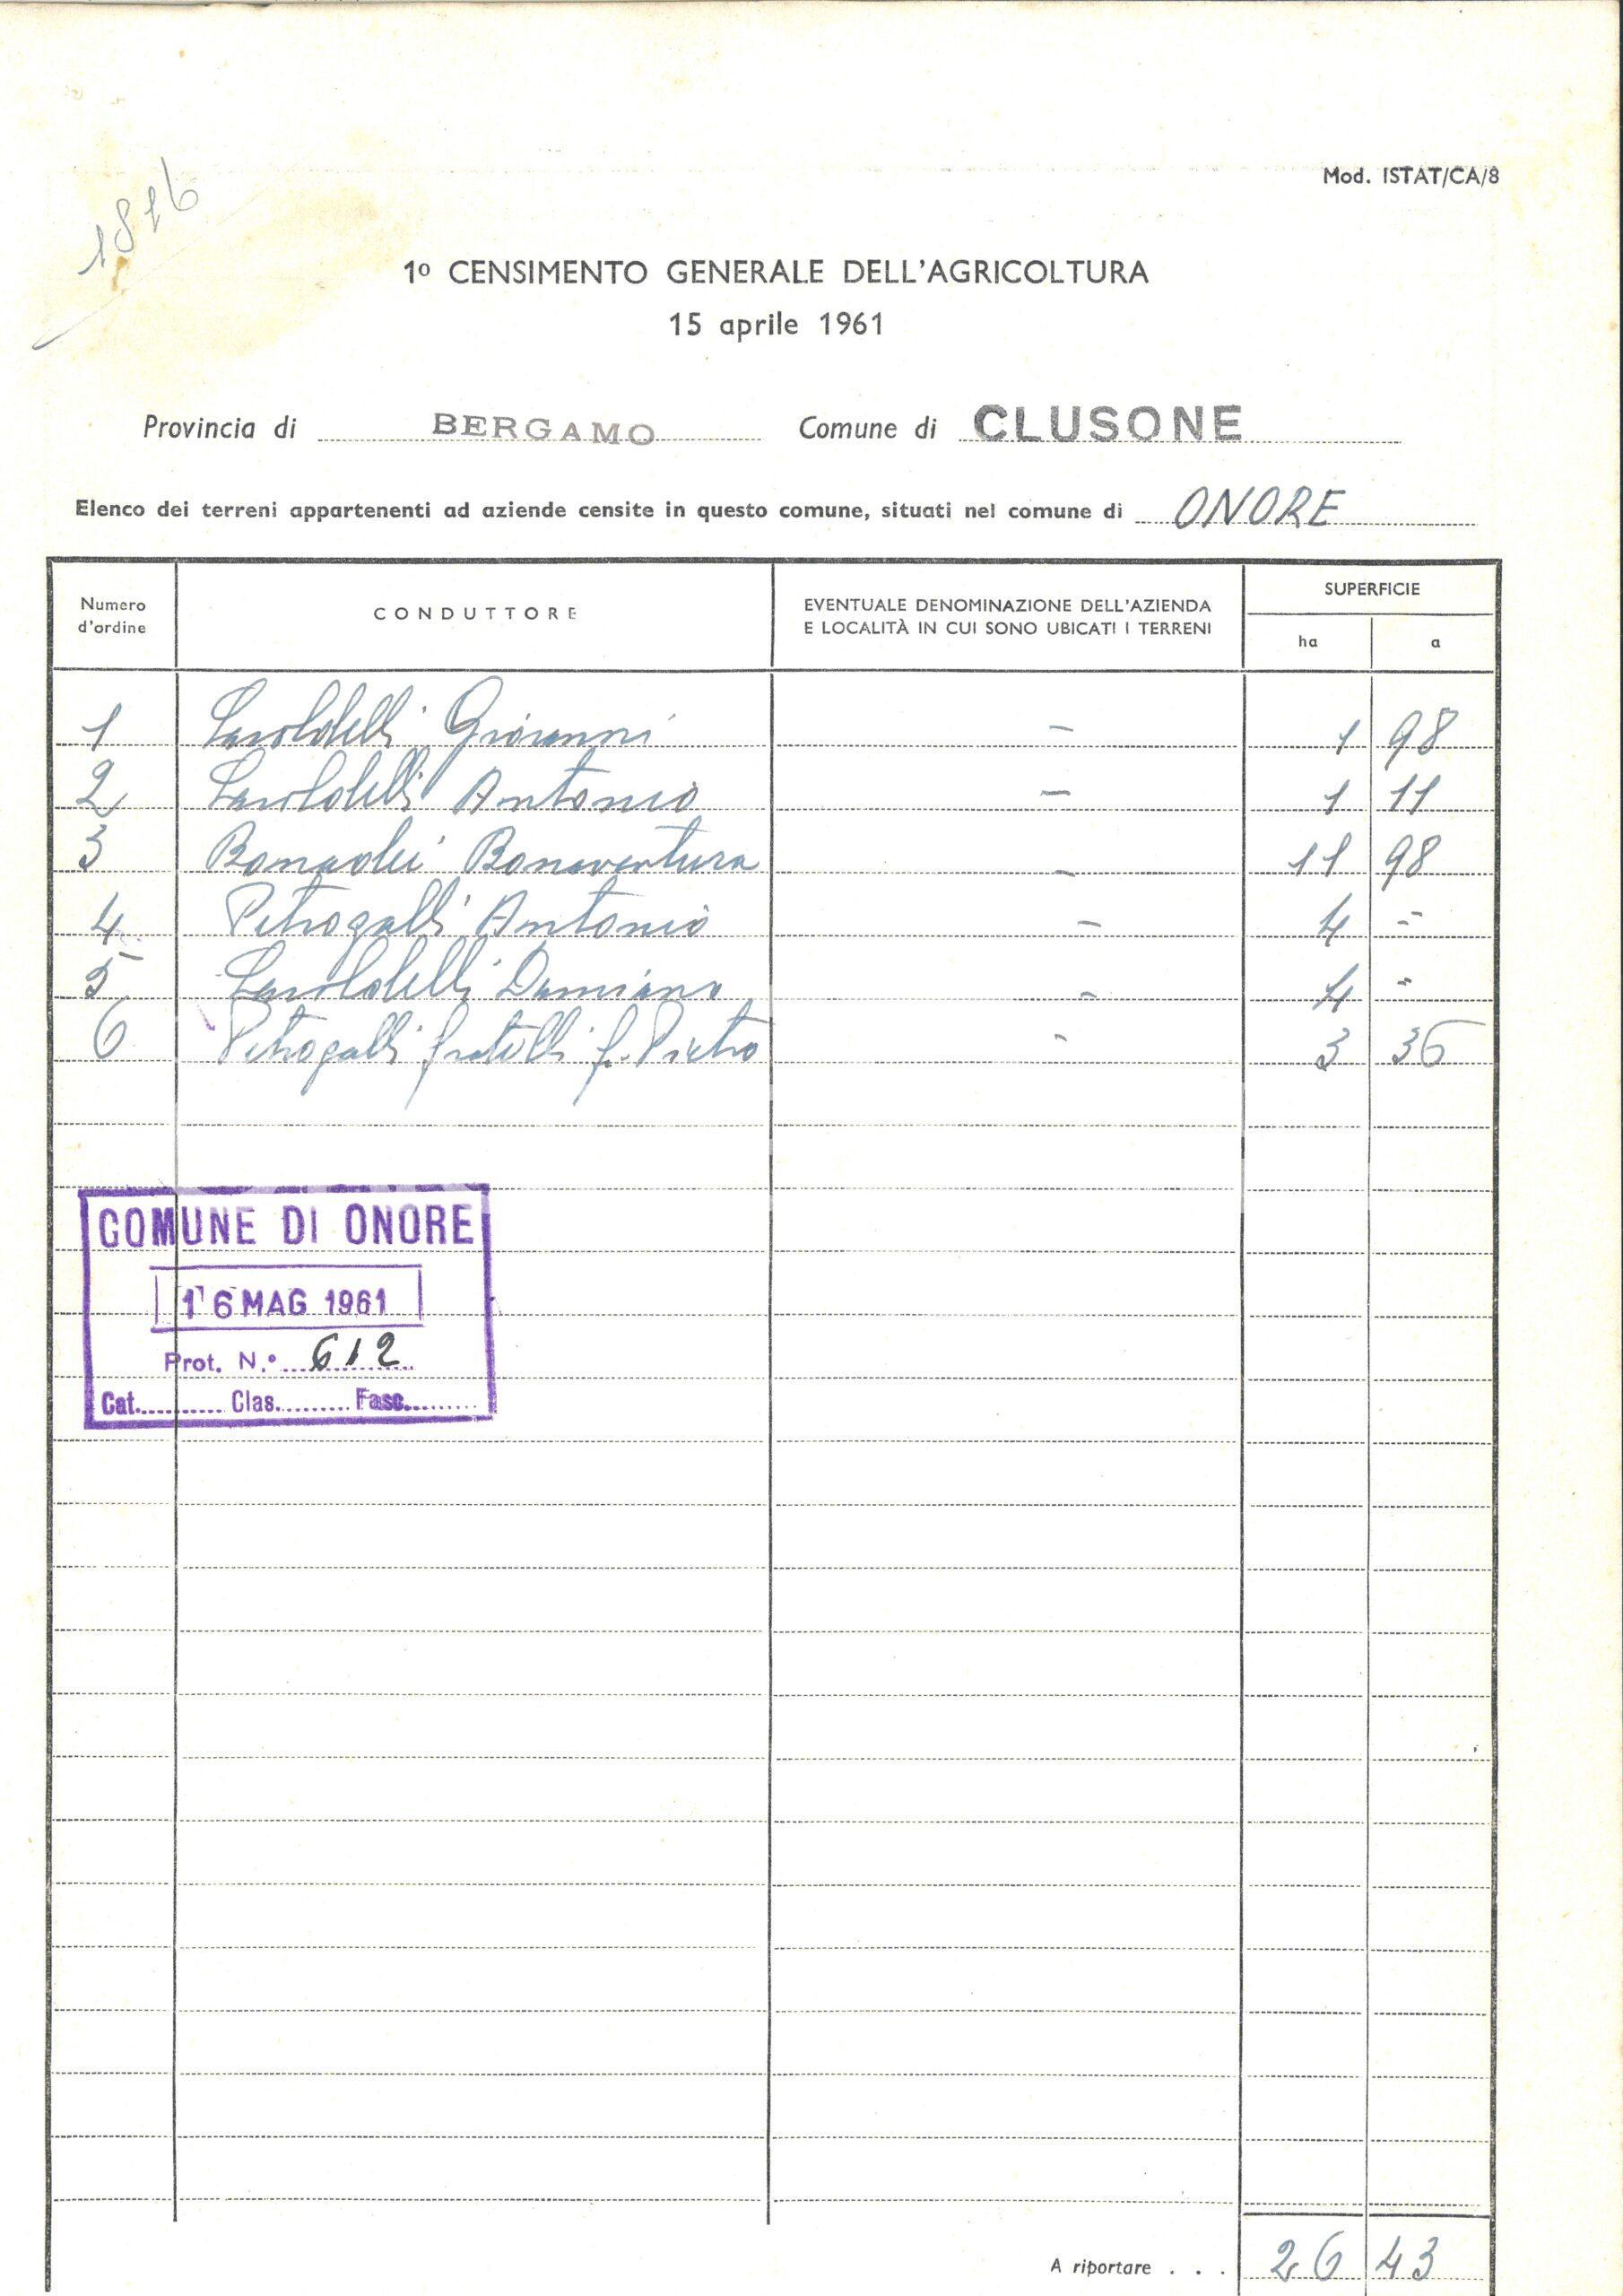 Mod. ISTAT/CA/8
1816
1º CENSIMENTO GENERALE DELL'AGRICOLTURA
15 aprile 1961
Provincia di BERGAMO Comune di CLUSONE
Elenco dei terreni appartenenti ad aziende censite in questo comune, situati nel comune di ONORE
Numero d'ordine CONDUTTORE EVENTUALE DENOMINAZIONE DELL'AZIENDA E LOCALITÀ IN CUI SONO UBICATI I TERRENI SUPERFICIE
ha a
1 Giovanni - 1 98
2 Antonio - 1 11
3 Bonaventura - 11 98
4 Petrogalli Antonio - 4 -
5 Damiano - 4 -
6 Petrogalli fratelli f. Pietro - 3 36
COMUNE DI ONORE
16 MAG 1961
Prot. N.º 612
Cat. Clas. Fasc.
A riportare . . . 26 43